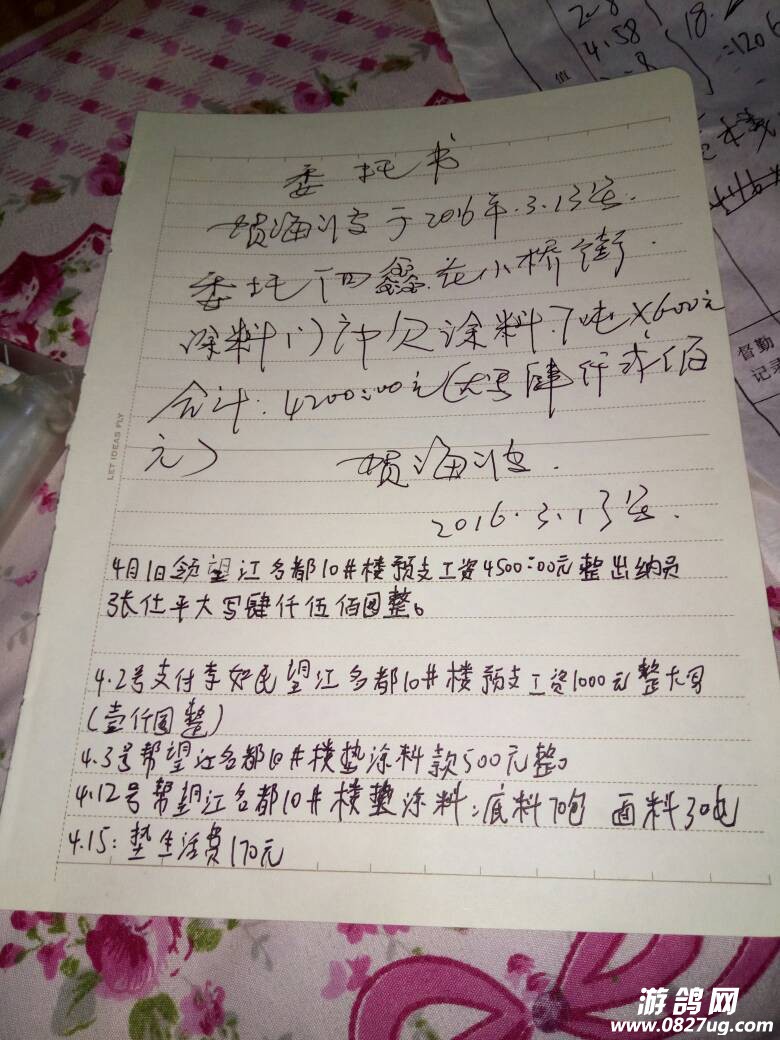 委托书
贺海波于2016年.3.13号.
委托丁四鑫.在小桥街.
涂料门冲欠涂料.7吨×600元
合计:4200:00元(大写肆仟贰佰
元)
贺海波.
2016.3.13号.
4月1日领望江名都10#楼预支工资4500:00元整出纳员
张仕平大写肆仟伍佰圆整。
4.2号支付李好民望江名都10#楼预支工资1000元整大写
(壹仟圆整)
4.3号帮望江名都10#楼垫涂料款500元整。
4.12号帮望江名都10#楼垫涂料:底料70包 面料30包
4.15:垫生活费170元
LET IDEAS FLY
2.8
4.58
18.
=1206
值
督勤
记录
游鸽网
www.0827ug.com